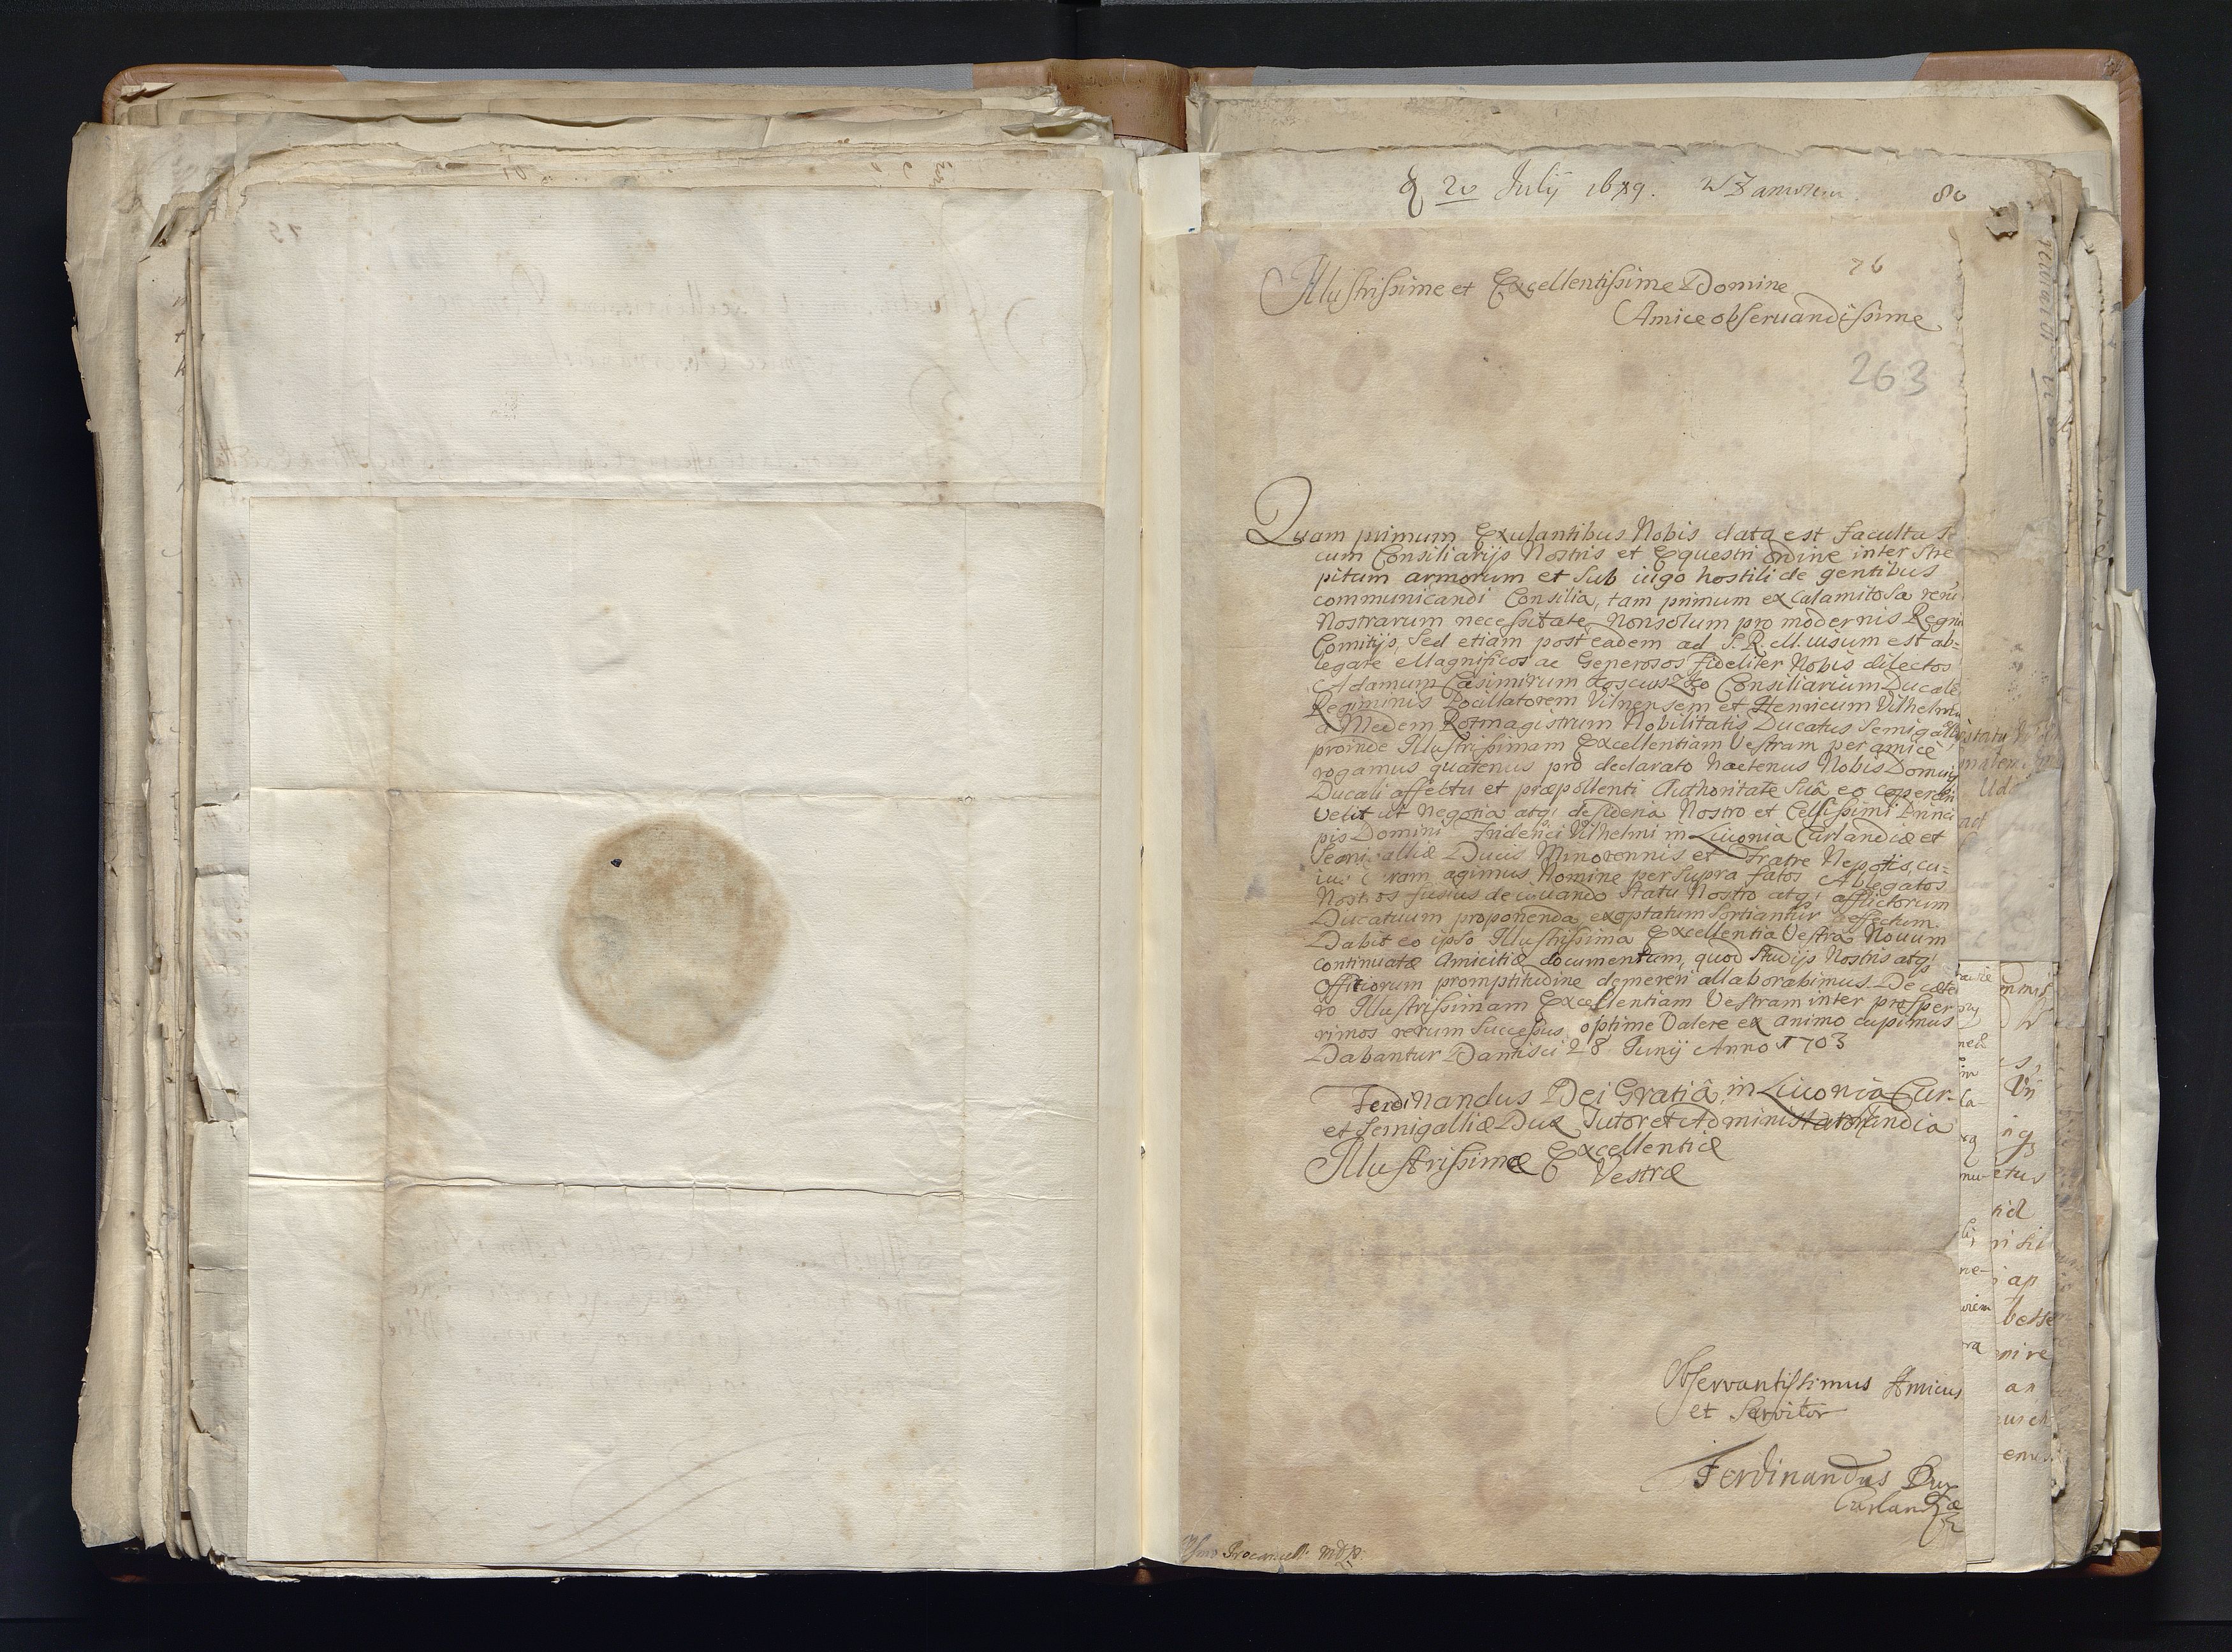 20 Julij 1679. w Zamościu.
80
76
Illustrissime et Excellentissime Domine
Amice obseruandissime
263
Quam primum Exulantibus Nobis data est facultas
cum Consiliarijs Nostris et Equestri ordine inter stre
pitum armorum et sub iugo hostili de gentibus
communicandi Consilia, tam primum ex Calamitosa reru
Nostrarum necessitate, Non solum pro modernis Regni
Comitijs, sed etiam post eadem ad S. R. M. uisum est ab-
legare Magnificos ac Generosos Fideliter Nobis dilectos
Adamum Casimirum Kosciuszko Consiliarium Ducale
Regiminis Pocillatorem Vilnensem et Henricum Vilhelmu
a Medem Rotmagistrum Nobilitatis Ducatus Semigall
proinde Illustrissimam Excellentiam Vestram per amicè
rogamus quatenus pro declarato hactenus Nobis Domuiq
Ducali affectu et præpollenti Authoritate Suâ eo
Velit ut Negotia atq; desideria Nostro et Celsissimi Princi
pis Domini Friderici Vilhelmi in Liuonia Curlandiæ et
Semigalliæ Ducis Minorennis et Fratre Nepotis, cu-
ram agimus Nomine per supra fatos Ablegatos
Nostros fusius de iuuando Statu Nostro atq; afflictorum
Ducatuum proponenda, exoptatum sortiantur effectum.
Dabit eo ipso Illustrissima Excellentia Vestra Nouum
continuatæ Amicitiæ documentum, quod Studijs Nostris atq;
Officiorum promptitudine demereri allaborabimus. De cæte
ro Illustrissimam Excellentiam Vestram inter prosper
rimos rerum Successus optime Valere ex animo cupimus
Dabantur Dantisci 28 Junij Anno 1703
Ferdinandus Dei Gratiâ in Liuonia Cur-
et Semigalliæ Dux Tutor et Administrator landia
Illustrissimæ Excellentiæ
Vestræ
Observantissimus Amicus
et Servitor
Ferdinandus Dux
Curlandiæ